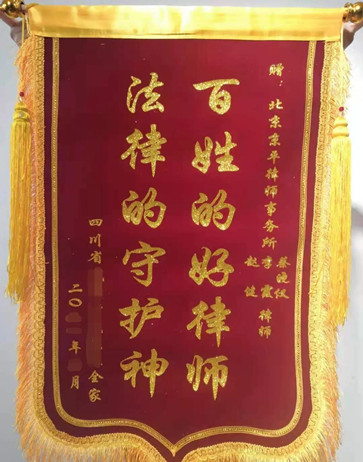 赠：北京京平律师事务所
蔡晓仪
李霞 律师
赵健
百姓的好律师
法律的守护神
四川省 全家
二〇 年 月